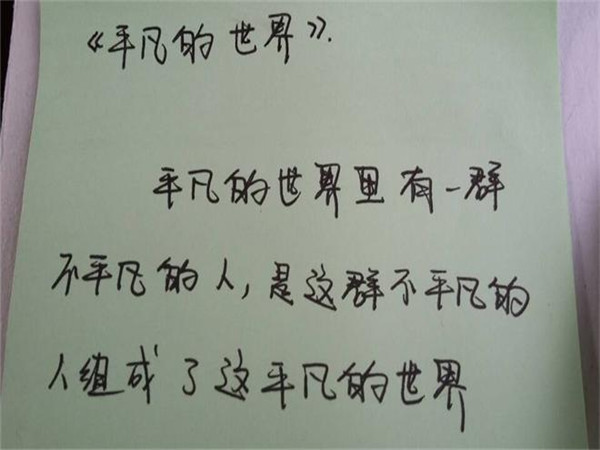 《平凡的世界》.
平凡的世界里有一群
不平凡的人,是这群不平凡的
人组成了这平凡的世界